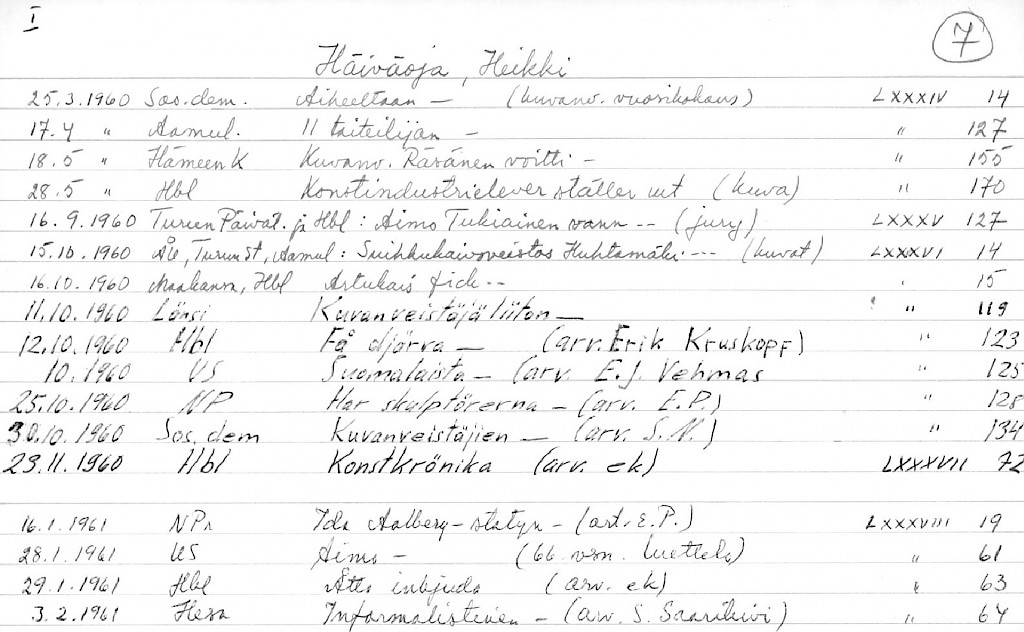 I
7
Häiväoja, Heikki
25.3.1960 Sos.dem. Aiheeltaan — (kuvanv. vuosikokous) LXXXIV 14
17.4 " Aamul. 11 taiteilijan — " 127
18.5 " HämeenK Kuvanv. Räsänen voitti — " 155
28.5 " Hbl Konstindustrielever ställer ut (kuva) " 170
16.9.1960 Turun Päivät. ja Hbl : Aimo Tukiainen vann -- (jury) LXXXV 127
15.10.1960 Ål, Turun St, Aamul : Suihkukaivoveistos Huhtamäki --- (kuvat) LXXXVI 14
16.10.1960 Maakansa, Hbl Artukais fick -- " 15
11.10.1960 Länsi Kuvanveistäjäliiton — " 119
12.10.1960 Hbl Få djärva — (arv. Erik Kruskopf) " 123
10.1960 US Suomalaista — (arv. E.J. Vehmas " 125
25.10.1960 NP Har skulptörerna — (arv. E.P.) " 128
30.10.1960 Sos.dem Kuvanveistäjien — (arv. S.N.) " 134
23.11.1960 Hbl Konstkrönika (arv. ek) LXXXVII 72
16.1.1961 NPr Ida Aalberg-statyn — (art. E.P.) LXXXVIII 19
28.1.1961 US Aimo — (66 luettelo) " 61
29.1.1961 Hbl Åtta inbjuda (arv. ek) " 63
3.2.1961 Hesa Informalistinen — (arv. S. Saarikivi) " 64